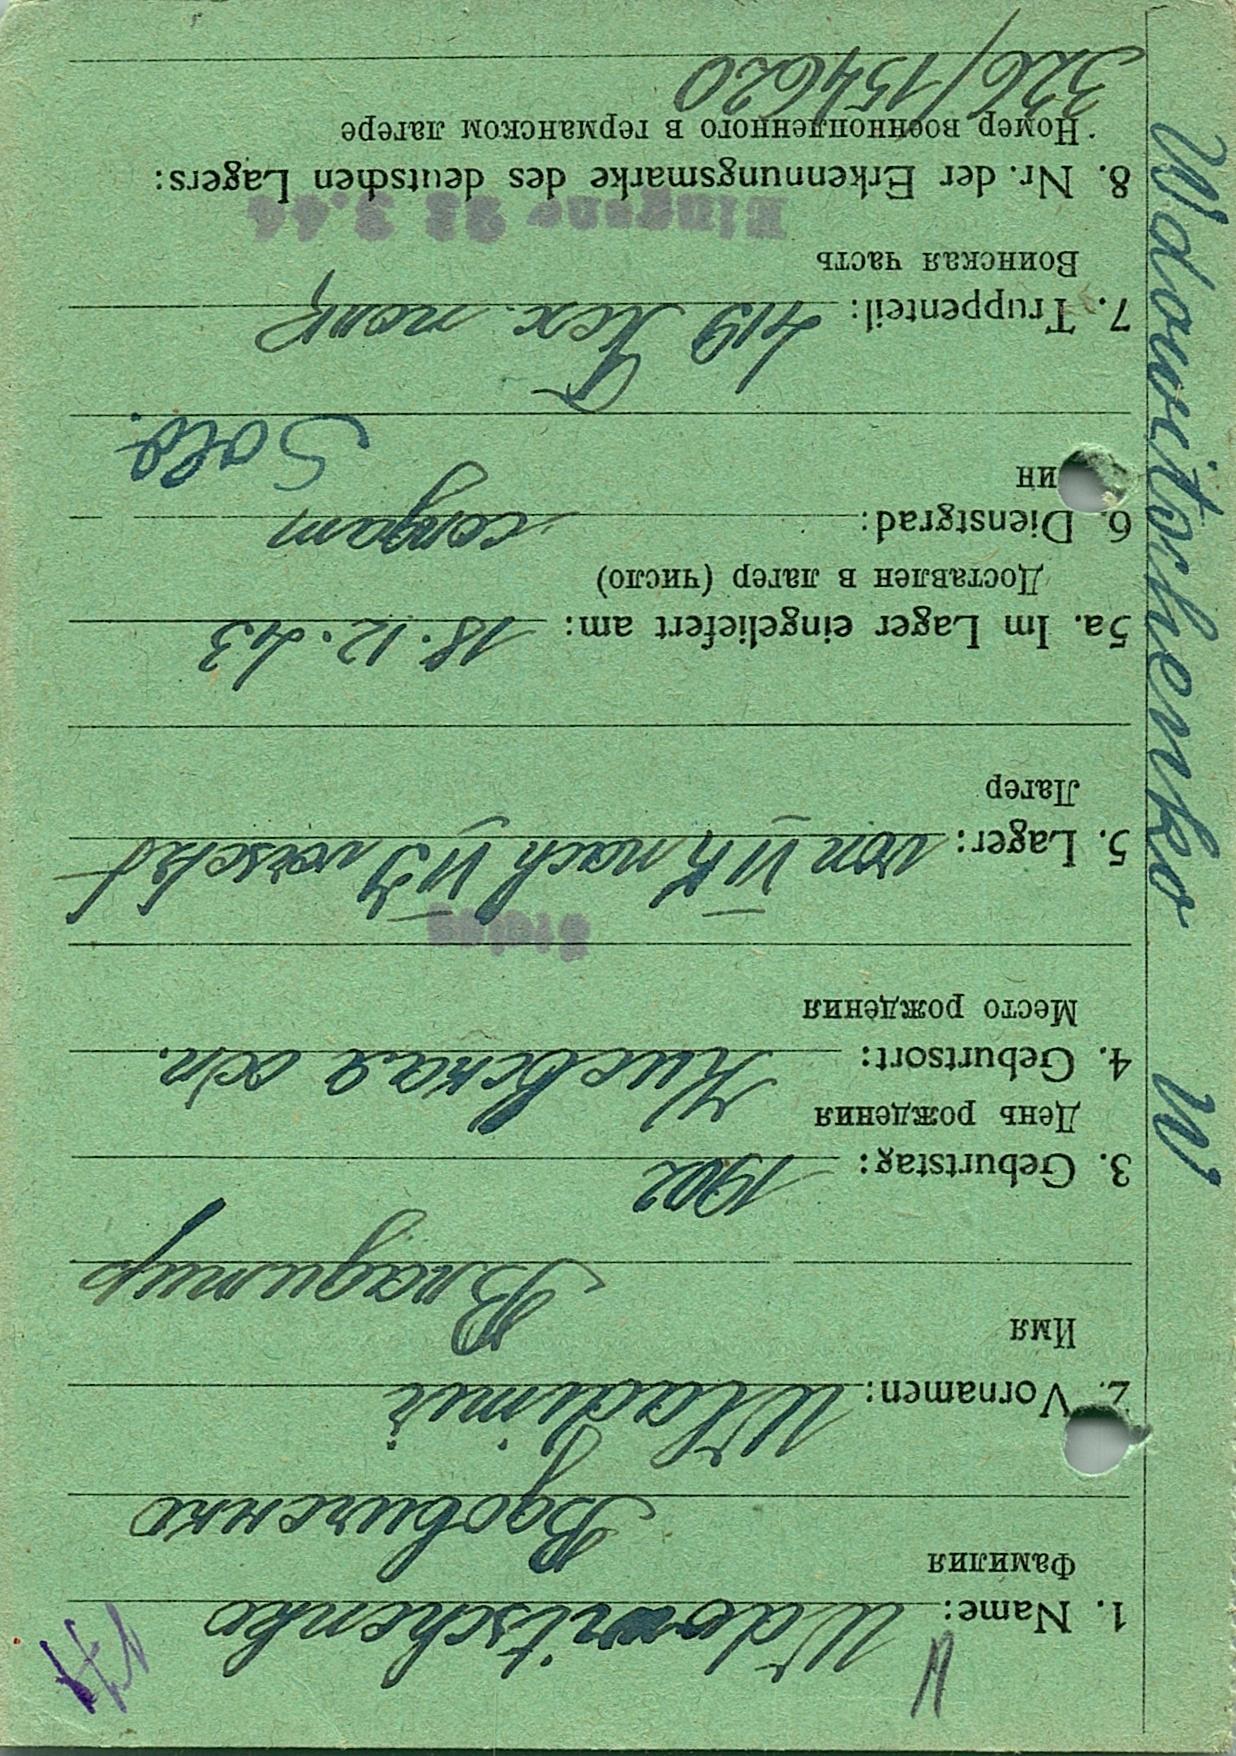 Wdowitschenko W
1. Name: Wdowitschenko
Фамилия
Вдовиченко
2. Vornamen: Wladimir
Имя
Владимир
3. Geburtstag: 1902
День рождения
4. Geburtsort: Киевская обл.
Место рождения
Stalag
5. Lager: von VI K nach VI J versetzt
Лагер
5a. Im Lager eingeliefert am: 18.12.43
Доставлен в лагер (число)
6. Dienstgrad: солдат
ин
Sold.
7. Truppenteil: 419 Тех. полк
Воинская часть
Eingang 23 3.44
8. Nr. der Erkennungsmarke des deutschen Lagers:
Номер военнопленного в германском лагере
326/154620